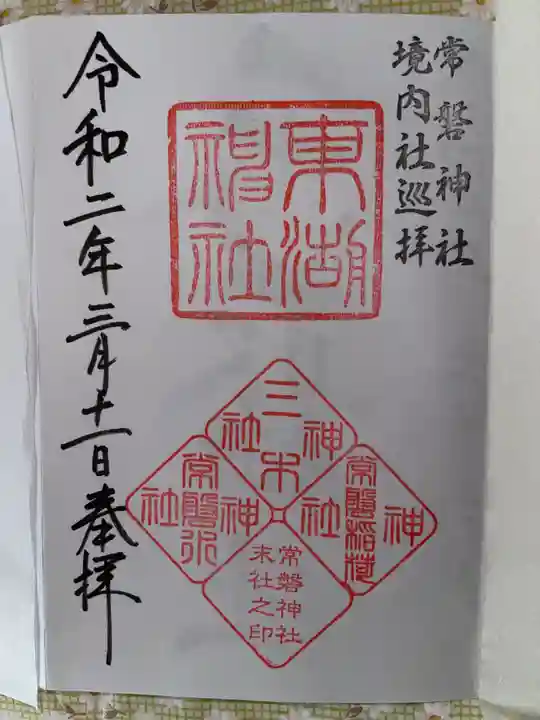 常磐神社
境内社巡拝
東湖
神社
三木
神社
常磐稲荷
神社
常磐
神社
常磐神社
末社之印
令和二年三月十一日奉拝